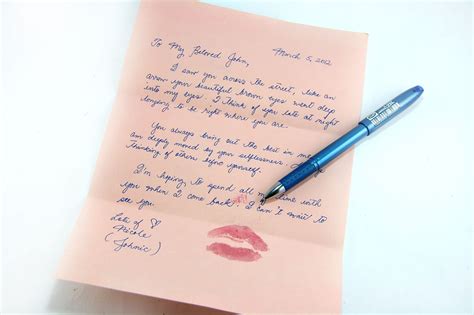 March 5, 2012
To My Beloved John,
I saw you across the street, like an
arrow your beautiful brown eyes went deep
into my eyes. I think of you late at night
longing to be right where you are.
You always bring out the best in me
am deeply moved by your selflessness.
Thinking of others before yourself.
I'm hoping to spend all my time with
you when I come back. I can't wait to
see you.
Lots of ♡
Nicole
(Johnic)